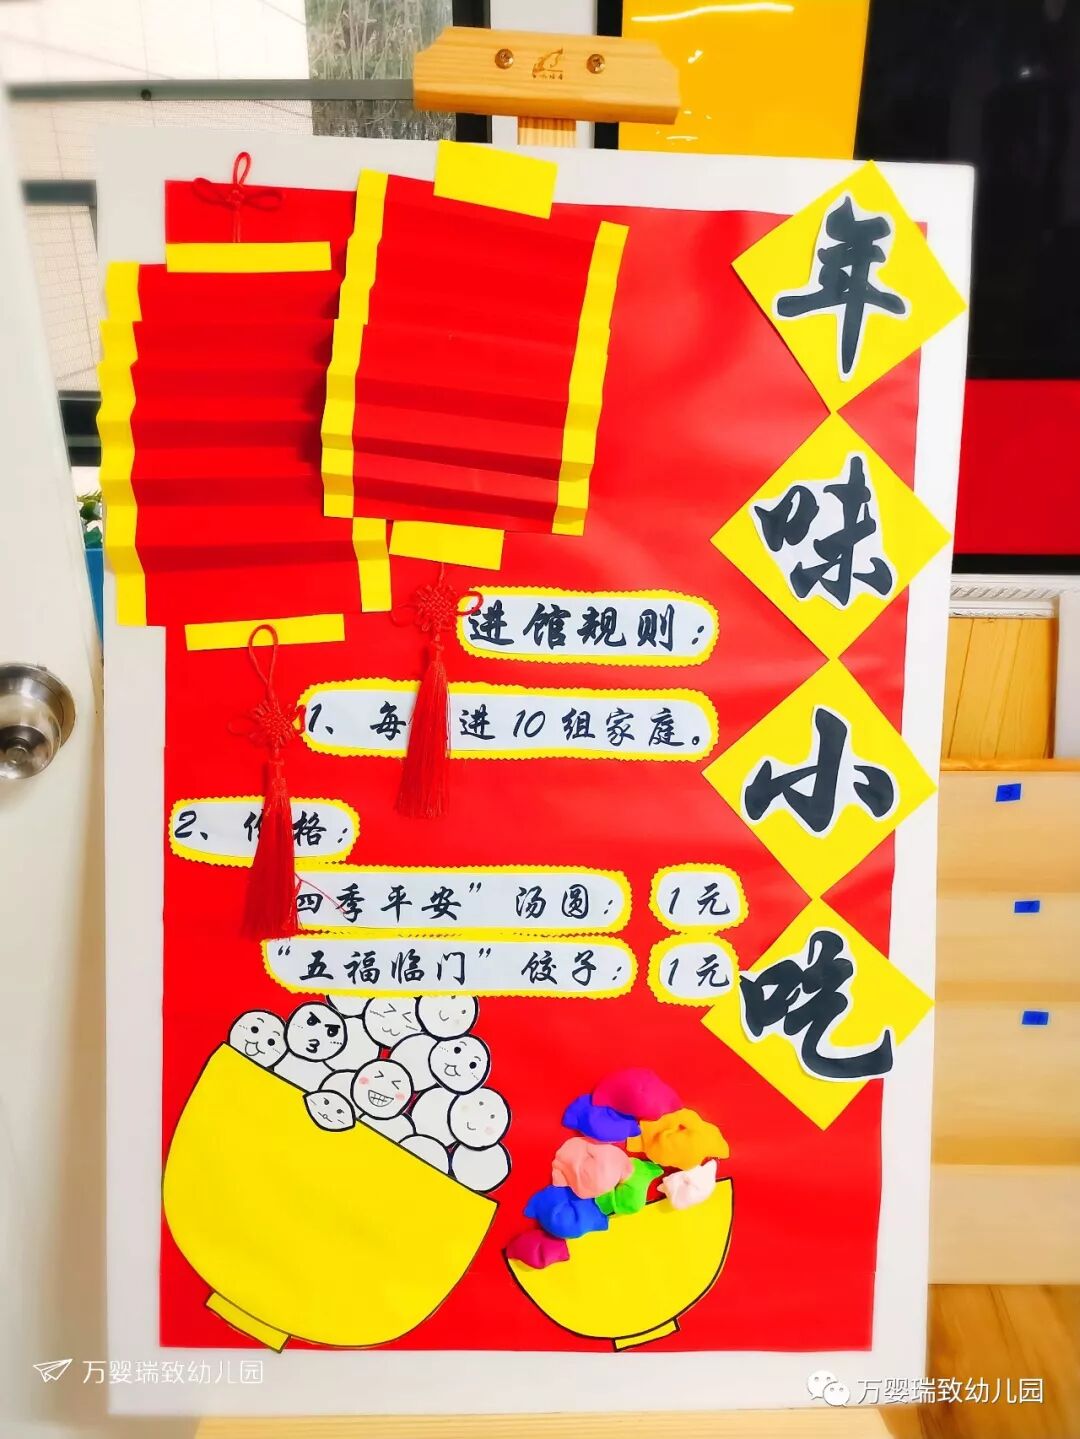 年味小吃
进馆规则：
1、每 进10组家庭。
2、价格：
四季平安”汤圆：1元
“五福临门”饺子：1元
万婴瑞致幼儿园
万婴瑞致幼儿园